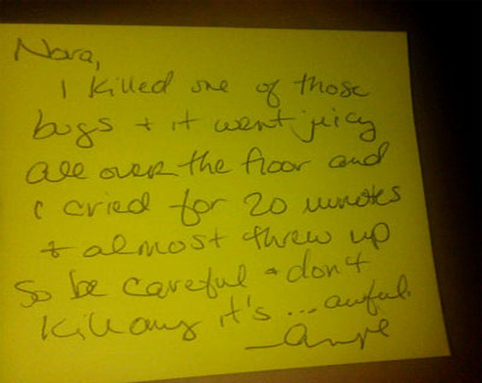 Nora,
I killed one of those
bugs + it went juicy
all over the floor and
I cried for 20 minutes
+ almost threw up
So be careful + don't
kill any it's ... awful.